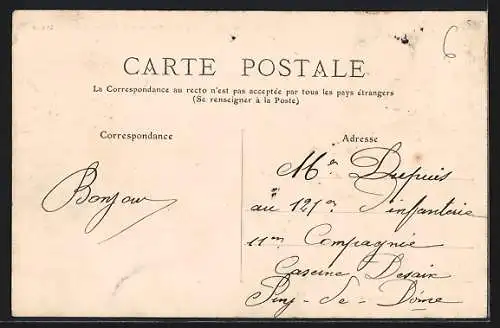 6
CARTE POSTALE
La Correspondance au recto n'est pas acceptée par tous les pays étrangers
(Se renseigner à la Poste)
Correspondance
Adresse
Bonjour
Mr Dupuis
au 121er d'infanterie
11em Compagnie
Caserne Desaix
Puy-de-Dôme